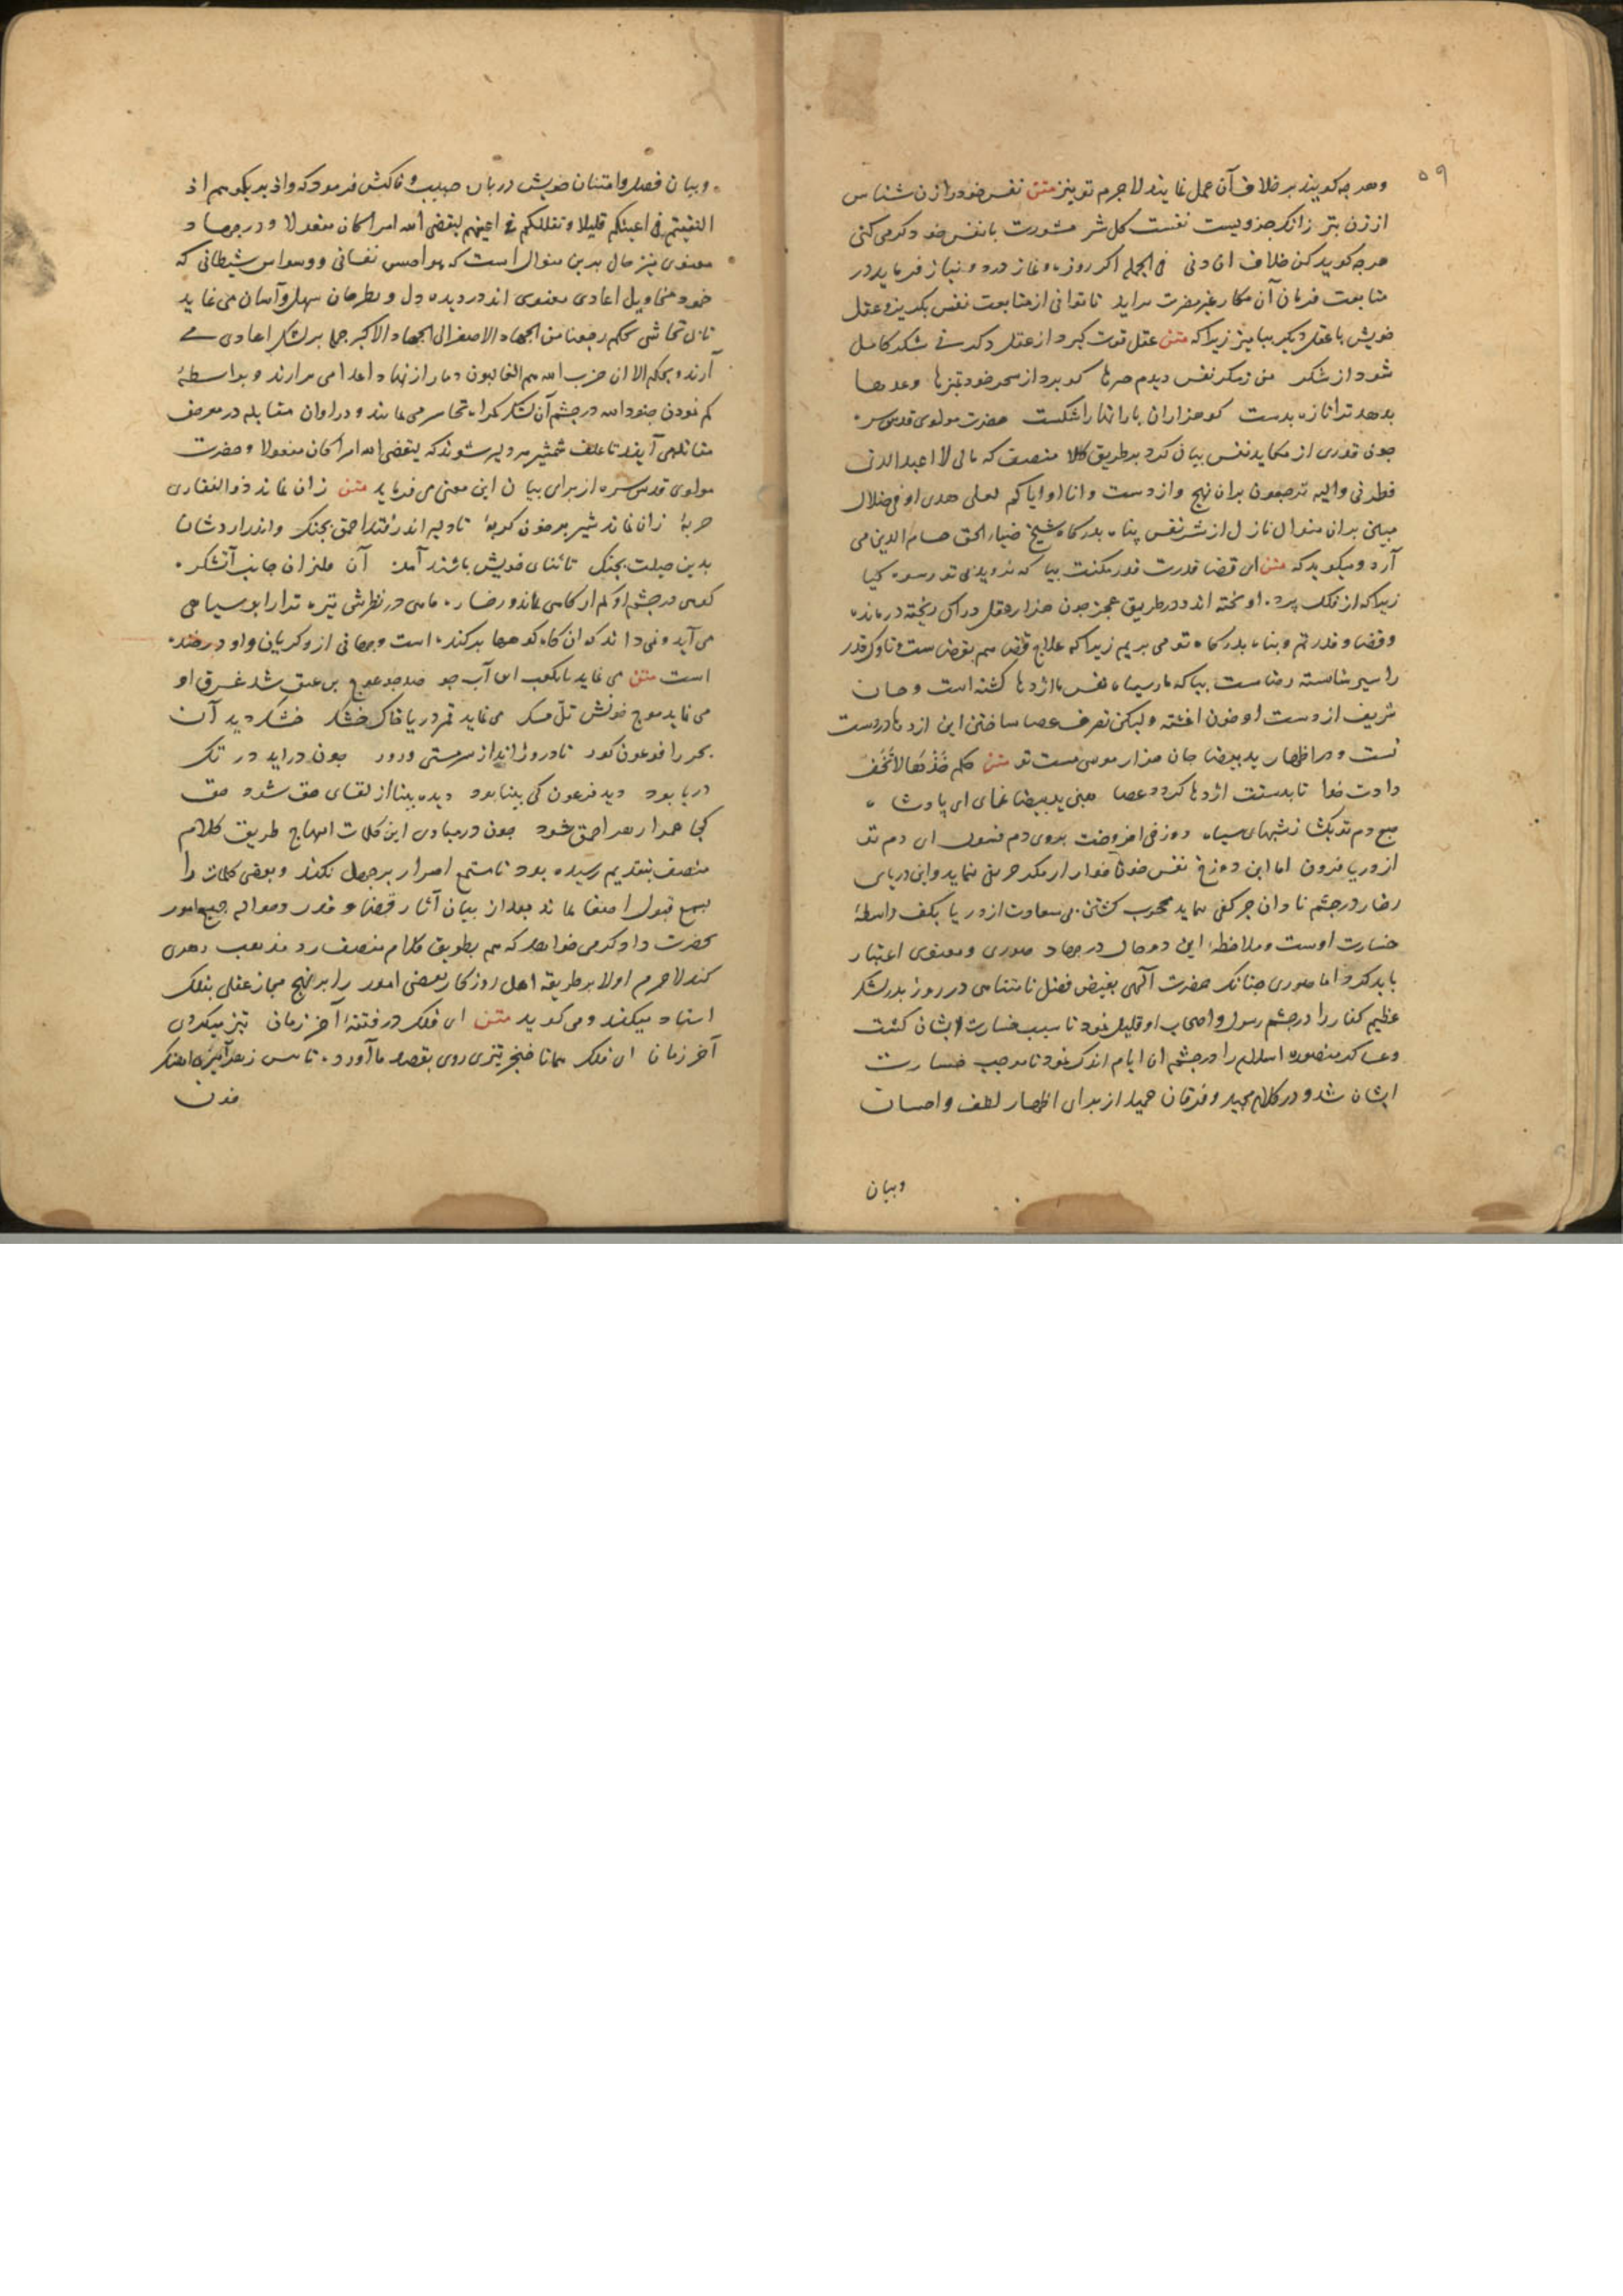 ۵۹
وهرچه کویند برخلاف آن عمل نمایند لاجرم تو نیز متن نفس خود را زن شناس
از زن بتر زانکه زن جزویست نفست کل شر مشورت با نفس خود کر می کنی
هرچه کوید کن خلاف آن دنی فی الجمله اکر روزه و نماز و درود و نیاز فرماید در
متابعت فرمان آن مکار غیر مضرت براید تا توانی از متابعت نفس بکریز و عقل
خویش با عقل دیکر بیامیز زیرا که متن عقل قوت کیرد از عقل دکر نی شکر کامل
شود از شکر من ز مکر نفس دیدم چیزها کو برد از سحر خود تمیزها وعدها
بدهد ترا تازه بدست کو هزاران بار آنها را شکست حضرت مولوی قدس سره
چون قدری از مکاید نفس بیان کرد بر طریق کلا منصف که مالی لا اعبد الذی
فطرنی والیه ترجعون بران نهج وازدست وانا او ایاکم لعلی هدی او فی ضلال
مبین بران منوال نازل از شر نفس پناه بدرکاه شیخ ضیاء الحق حسام الدین می
آرد و میکوید که متن ای قضا قدرت قدر مکنت بیا که نروید بی تو در شوره کیا
زیرا که از فلک پرده آویخته اند و در طریق عجز چون هزار عقل دراک ریخته درمانده
وقضا و قدر تم و پناه بدرکاه تو می بریم زیرا که علاج قضا هم بقضاست و ناوک قدر
را سپر شایسته رضاست بیا که مار سیاه نفس ما اژدها کشته است و جان
شریف از دست او خون اغشته ولیکن تصرف عصا ساختن این اژدها در دست
تست و در اظهار ید بیضا جان هزار موسی مست تو متن حکم خُذْهَا لَا تَخَفْ
دادت خدا تا بدستت اژدها کردد عصا هین ید بیضا نمای ای پادشاه
صبح دم نو بکشا ز شبهای سیاه دوزخی افروخت بروی دم فسون ای دم تو
از دریا فزون اما این دوزخ نفس خود را خوار ار مکر حرفی نماید و این دریای
زخار در چشم نادان چو کفی نماید محجوب کشتن بی سعادت از دریا بکف واسطهٔ
خسارت اوست وملاحظهٔ این دو حال در جهاد صوری ومعنوی اعتبار
باید کرد اما صوری چنانک حضرت آلهی بفیض فضل نامتناهی در روز بدر لشکر
عظیم کفار را در چشم رسول و اصحاب او قلیل نمود تا سبب خسارت ایشان کشت
وعساکر منصوره اسلام را در چشم ان ایام اندک نمود تا موجب خسارت
ایشان شد و در کلام مجید و فرقان حمید از برای اظهار لطف و احسان
وبیان
وبیان فضل و امتنان خویش در بان حبیب و خاکش فرمود که واذ یریکموهم اذ
التقیتم فی اعینکم قلیلا ویقللکم فی اعینهم لیقضی الله امرا کان مفعولا ودر جهاد
معنوی نیز حال بدین منوال است که هواجس نفسانی ووسواس شیطانی که
خود منجاویل اعادی معنوی اند در دیده دل و نظر جان سهل و آسان می نماید
تا بی تحاشی بحکم رجعنا من الجهاد الاصغر الی الجهاد الاکبر حمله بر لشکر اعادی می
آرند و بحکم الا ان حزب الله هم الغالبون دمار از نهاد اعدا می برارند و بواسطهٔ
کم نمودن جنود الله در چشم آن لشکر کمراه تجاسر می نمایند و دراوان مقابله در معرض
مقاتله می آیند تا علف شمشیر مردم شوند که لیقضی الله امرا کان مفعولا وحضرت
مولوی قدس سره از برای بیان این معنی می فرماید متن زان نماند ذوالفقاری
حربهٔ زان نماند شیر نر چون کربهٔ تا دلیر اندر فتد احمق بجنک واندر آردشان
بدین حیلت بجنک تا بپای خویش باشند آمده آن فلیزان جانب آتشکده
کوهی در چشم او کم از کاهی نماند و رخساره ماهی در نظرش تیره تر از ابر سیاهی
می آید و نمی داند که ان کاه کوهها بر کنده است و جهانی از و کریان و او در خنده
است متن می نماید تا بکعب این آب جو صد چو عوج بن عنق شد غرق او
می نماید موج خونش تل مسک می نماید قعر دریا خاک خشک خشک دید آن
بحر را فرعون کور تا درو راند از سرمستی وزور چون دراید در تک
دریا بود دیده فرعون کی بینا بود دیده بینا از لقای حق شود حق
کجا همراز هر احمق شود چون در مبادی این کلمات انتهاج طریق کلام
منصف بتقدیم رسیده بود تا مستمع اصرار بر جهل نکند و بعضی کلمات را
بسمع قبول اصغا نماید بعد از بیان آثار قضا و قدر وحواله جمیع امور
بحضرت دادکر می خواهد که هم بطریق کلام منصف رد مذهب دهری
کند لاجرم اولا بر طریقه اهل روزکار بعضی امور را بر نهج مجاز عقلی بفلک
اسناد میکند ومی کوید متن ای فلک در فتنهٔ آخر زمان تیز میکردی
آخر زمان ای فلک همانا خنجر تیزی روی بقصد ما آورده تا بس زهرآمیزی اهنک
خون